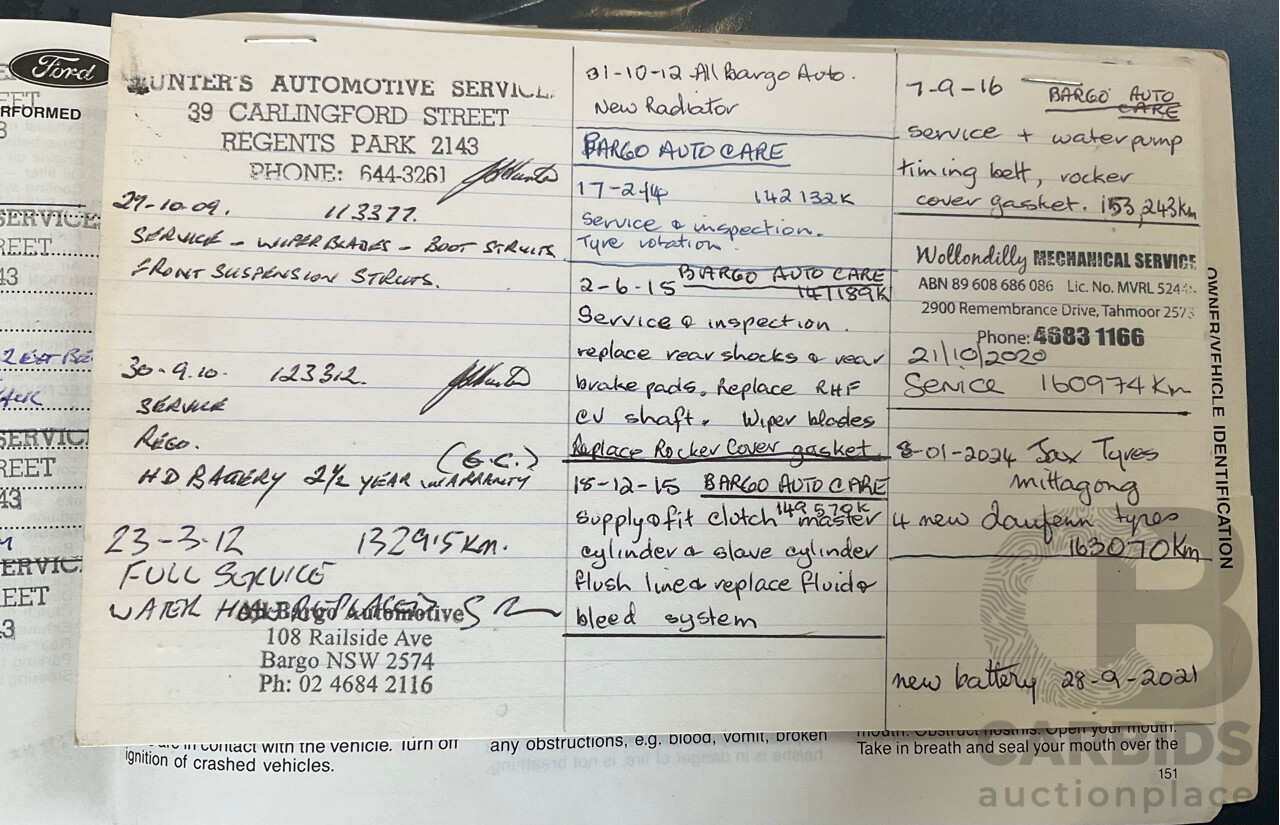 Ford
RFORMED
HUNTER'S AUTOMOTIVE SERVICE
39 CARLINGFORD STREET
REGENTS PARK 2143
PHONE: 644-3261
29-10-09. 113377.
SERVICE - WIPER BLADES - BOOT STRUTS
FRONT SUSPENSION STRUTS.
30-9.10. 123312.
SERVICE
REGO.
(G.C.)
HD BATTERY 2½ YEAR WARRANTY
23-3-12 132915 Km.
FULL SERVICE
WATER
All Bargo Automotive
108 Railside Ave
Bargo NSW 2574
Ph: 02 4684 2116
31-10-12 All Bargo Auto.
New Radiator
BARGO AUTO CARE
17-2-14 142 132K
Service & inspection.
Tyre rotation.
2-6-15 BARGO AUTO CARE
147189K
Service & inspection.
replace rear shocks & rear
brake pads. Replace RHF
CV shaft. Wiper blades
Replace Rocker Cover gasket.
18-12-15 BARGO AUTO CARE
149 579K
supply & fit clutch master
cylinder & slave cylinder
flush line & replace fluid &
bleed system
7-9-16 BARGO AUTO
CARE
service + waterpump
timing belt, rocker
cover gasket. 153,243km
Wollondilly MECHANICAL SERVICE
ABN 89 608 686 086 Lic. No. MVRL 524
2900 Remembrance Drive, Tahmoor 2573
Phone: 4683 1166
21/10/2020
Service 160974 Km
8-01-2024 Jax Tyres
Mittagong
4 new Laufenn tyres
163070 Km
new battery 28-9-2021
OWNER/VEHICLE IDENTIFICATION
in contact with the vehicle. Turn off
ignition of crashed vehicles.
any obstructions, e.g. blood, vomit, broken
mouth. Obstruct nostrils. Open your mouth.
Take in breath and seal your mouth over the
151
CARBIDS
auctionplace